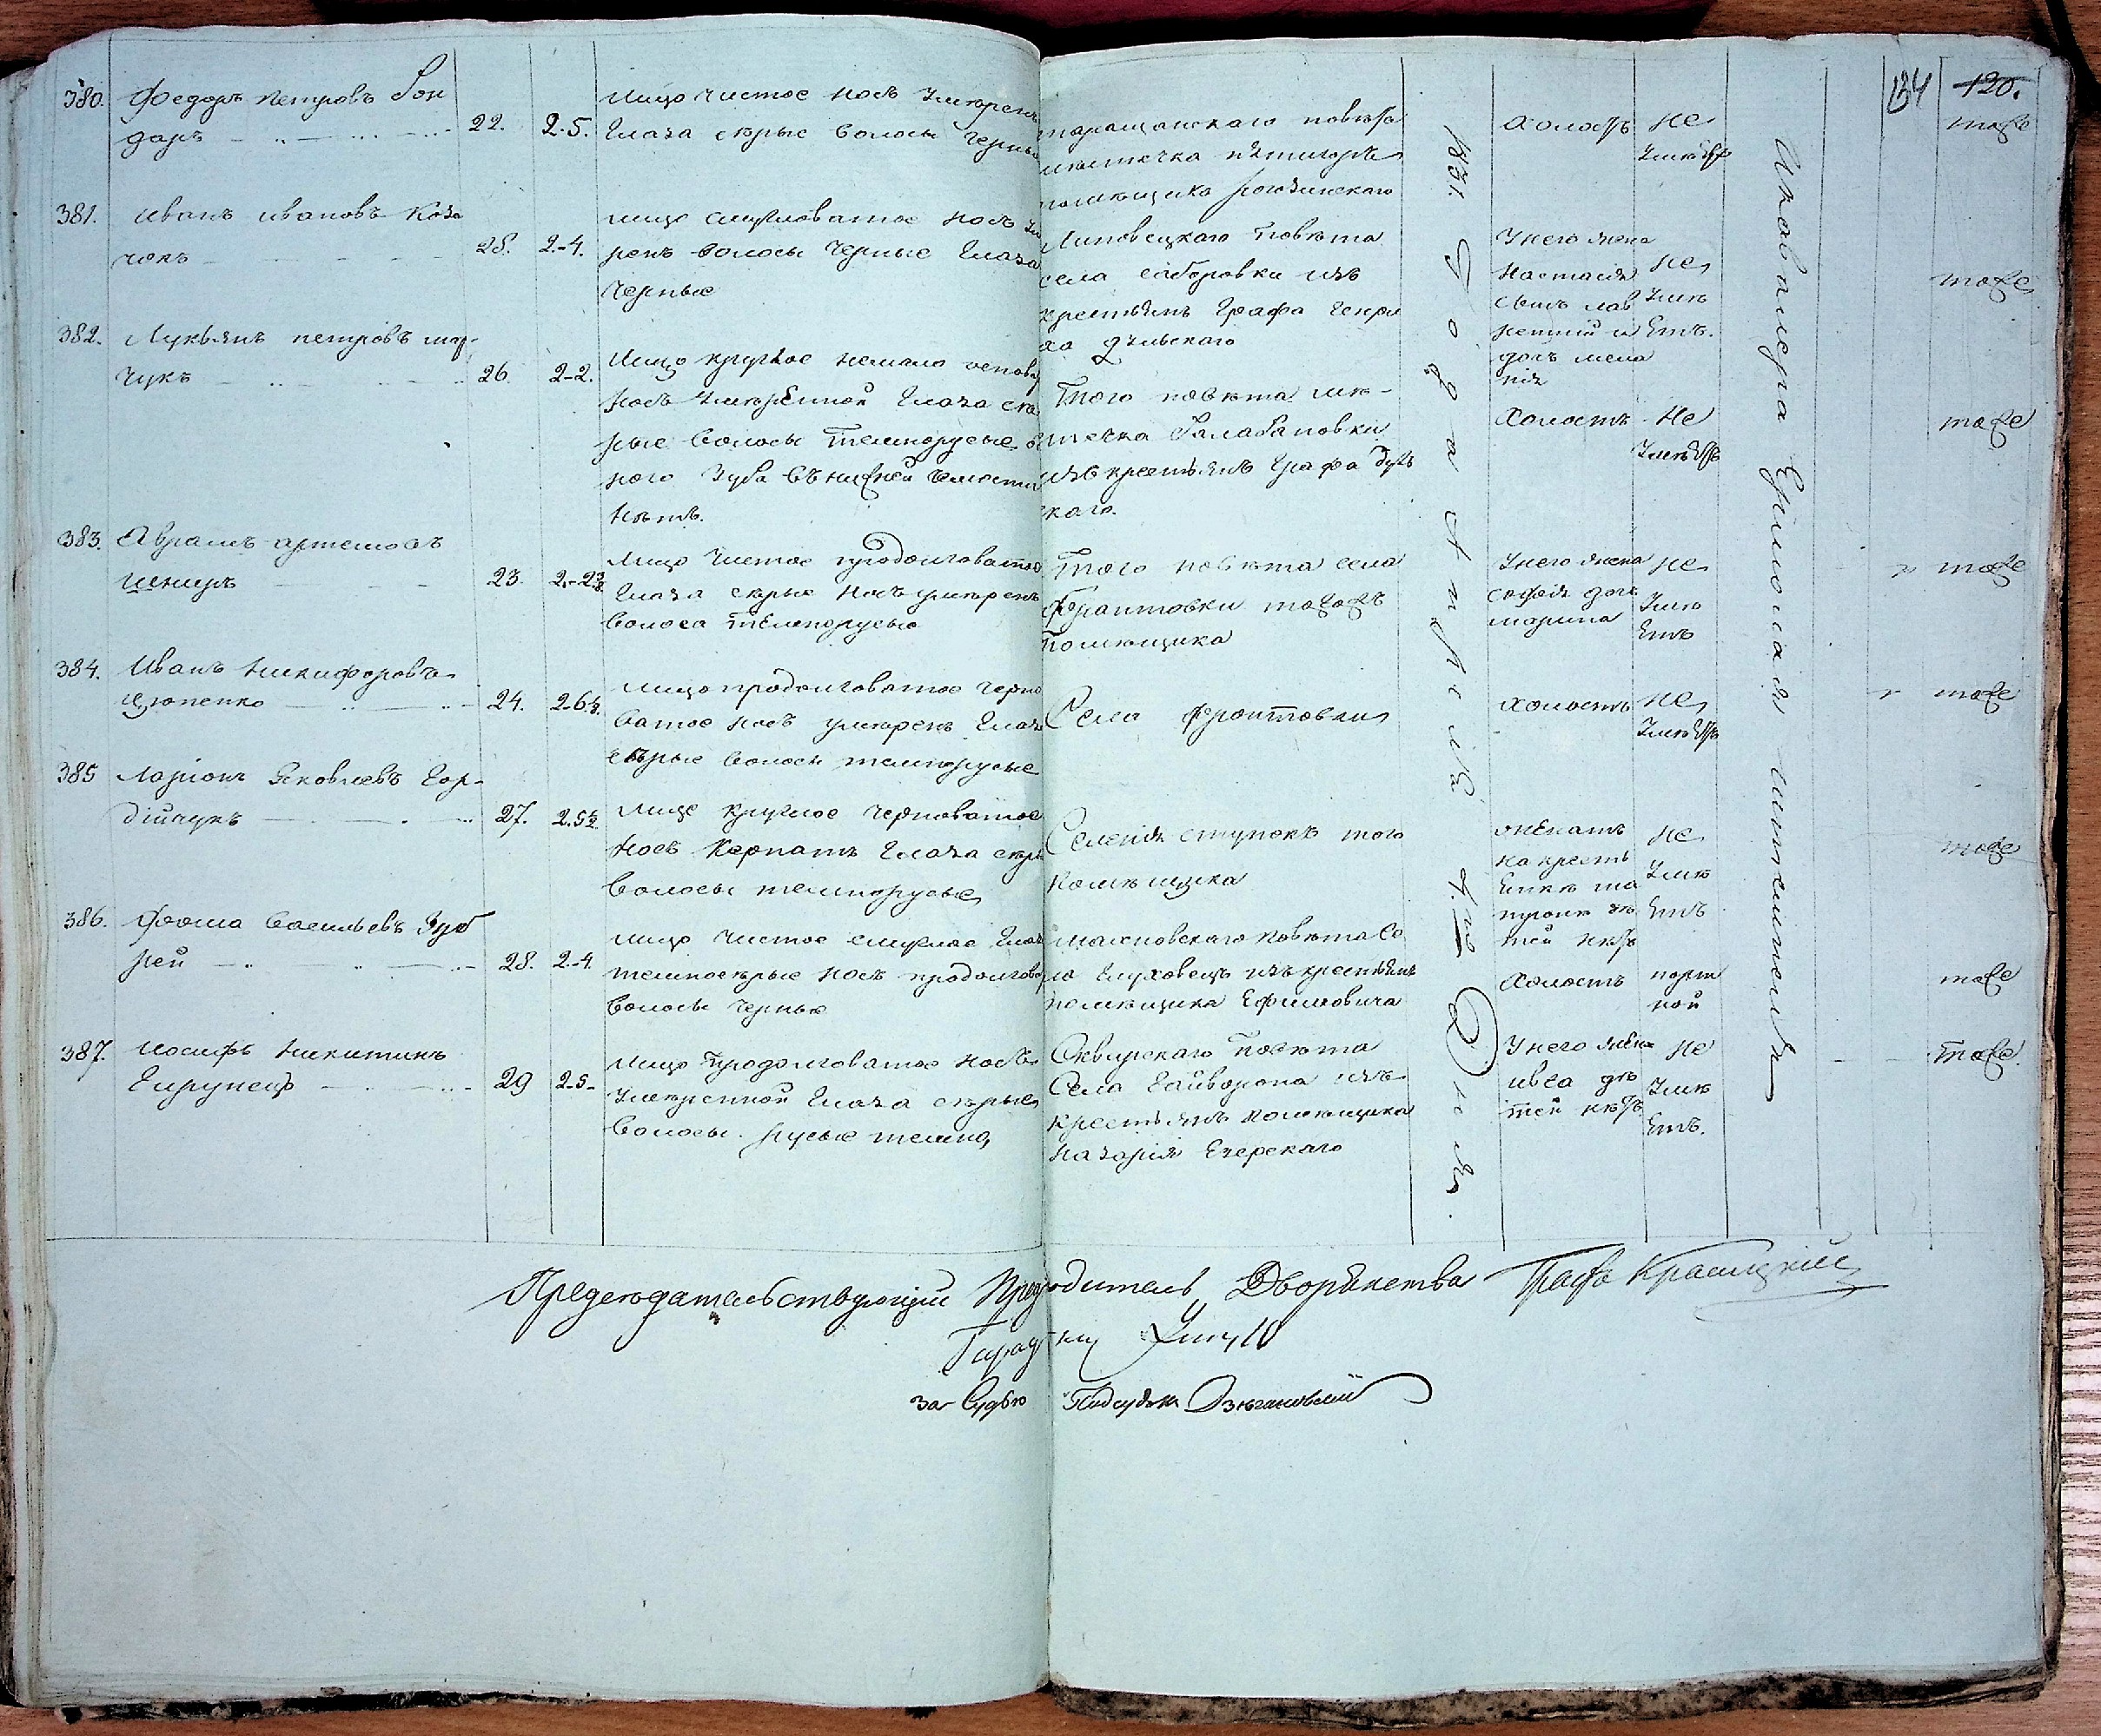 134 120.
380. Федоръ петровъ Бон
даръ 22. 2-5.
лицо чистое носъ умеренъ
глаза серые волосы черные
таращанскаго повета
местечка пятигоръ
помещика
холостъ не
умеетъ
тоже
381. иванъ ивановъ Коза
чокъ 25. 2-4.
лицо смугловатое носъ уме
ренъ волосы черные глаза
черные
Липовецкаго Повета
села изъ
крестьянъ Графа Генри
ха
У него жена
настасія не
сынъ лав уме
рентій и етъ.
дочъ мела
нія
тоже
382. Лукьянъ петровъ
чукъ 26. 2-2.
Лицо круглое немало
носъ умеренной глаза се
рые волосы темнорусые од
ного зуба въ нижней челюсти
нетъ.
Того повета ме-
стечка Балабановки
изъ крестьянъ графа
скаго.
Холостъ Не
умеетъ
тоже
383. Аврамъ артемовъ
23.
Лицо чистое продолговатое
глаза серые носъ умеренъ
волоса темнорусые
Того повета села
Фронтовки тогожъ
помещика
У него жена не
софія дочь уме
марина етъ
тоже
384. Иванъ никифоровъ
24.
лицо продолговатое черно
ватое носъ умеренъ глаза
серые волосы темнорусые
Села Фронтовки
холостъ не
умеетъ
тоже
385 Ларіонъ Яковлевъ Гор-
дійчукъ 27. 2.5½
лице круглое черноватое
носъ глаза серые
волосы темнорусые
Селенія ступокъ того
помещика
женатъ не
на кресть уме
янке ма етъ
троне де
тей нетъ
тоже
386. Фома васильевъ
рей 28. 2-4.
лицо чистое смуглое глаза
темносерые носъ продолговат
волосы черные
махновскаго повета Се
ла глуховецъ изъ крестьянъ
помещика Ефимовича
Холостъ порт
ной
тоже
387. иосифъ никитинъ
29 2-5-
лицо продолговатое носъ
умеренной глаза серые
волосы русые темно
Сквирскаго Повета
Села Гайворона изъ
крестьянъ помещика
назарія
У него жена не
ивга де уме
тей нетъ етъ.
тоже.
1831. Года Апреля 4.го Дня.
Председательствующій Предводитель Дворянства Графъ Красицкій
за Судью Подсудокъ